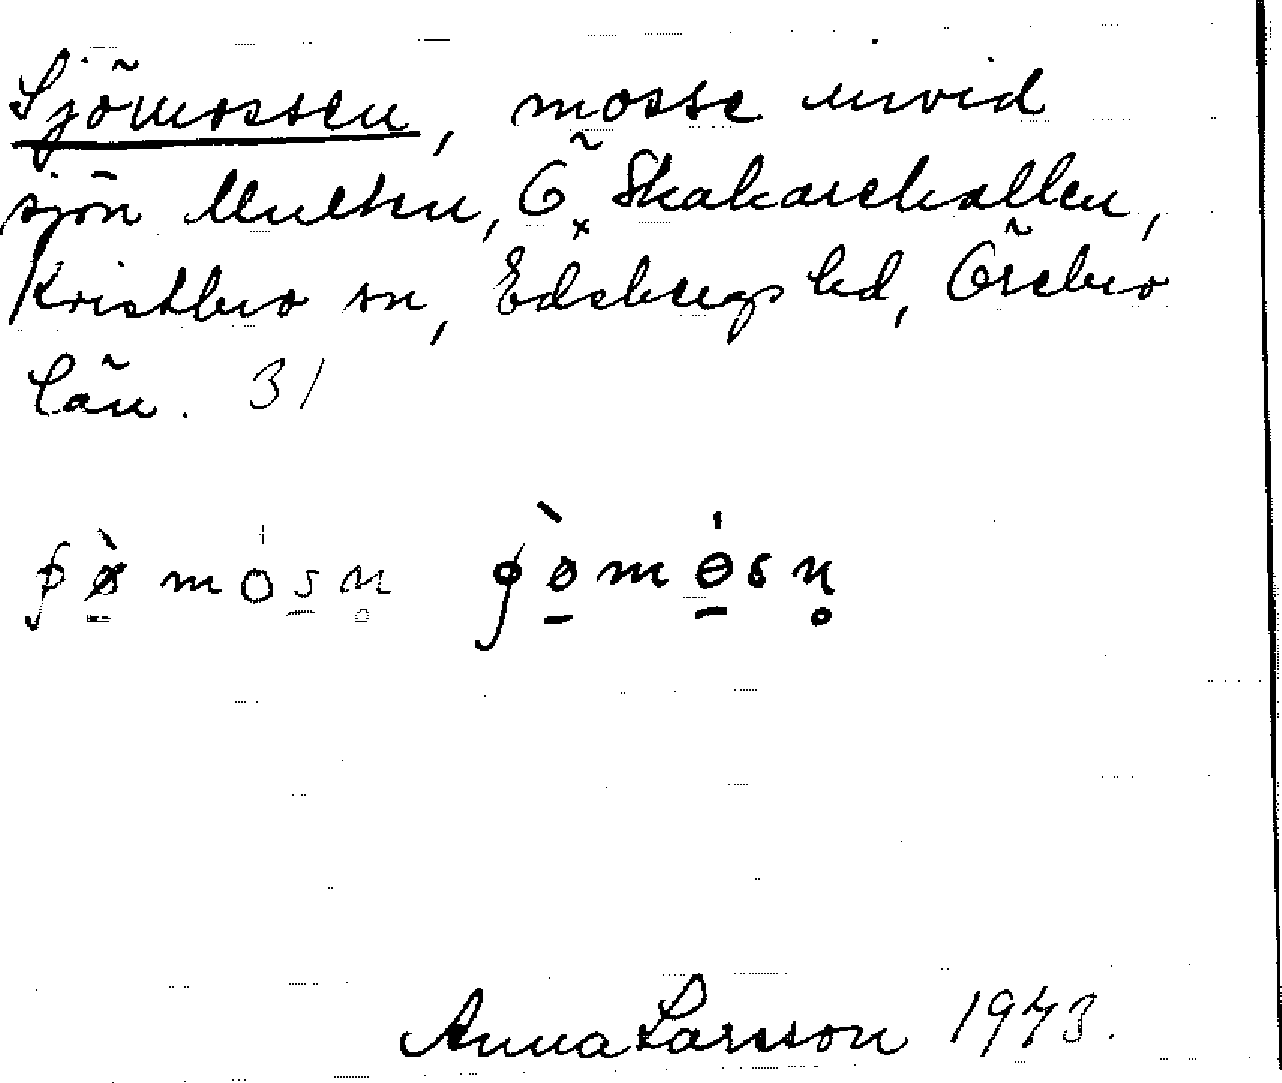 Sjömossen, mosse invid
sjön Multen, Ö. Skakarehallen,
Kristbro sn, Edsbergs hd, Örebro
län. 31
Anna Larsson 1973.